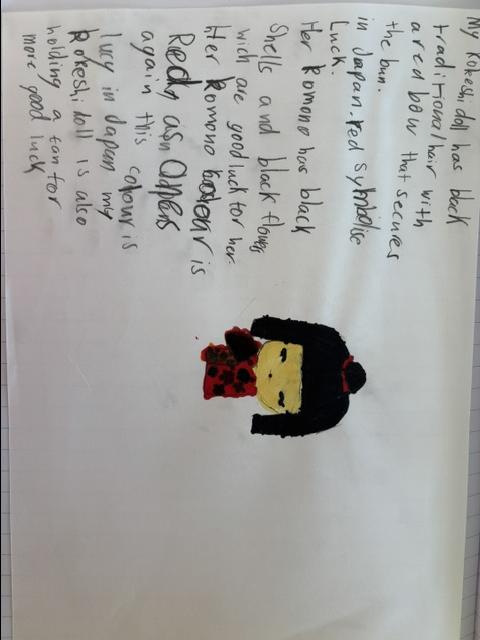 My Kokeshi doll has black
traditional hair with
a red bow that secures
the bun.
in Japan. red symbolise
Luck.
Her komono has black
Shells and black flowers
wich are good luck for her.
Her komono colour is
Red,
again this colour is
lucy in Japan my
Kokeshi doll is also
holding a fan for
more good luck